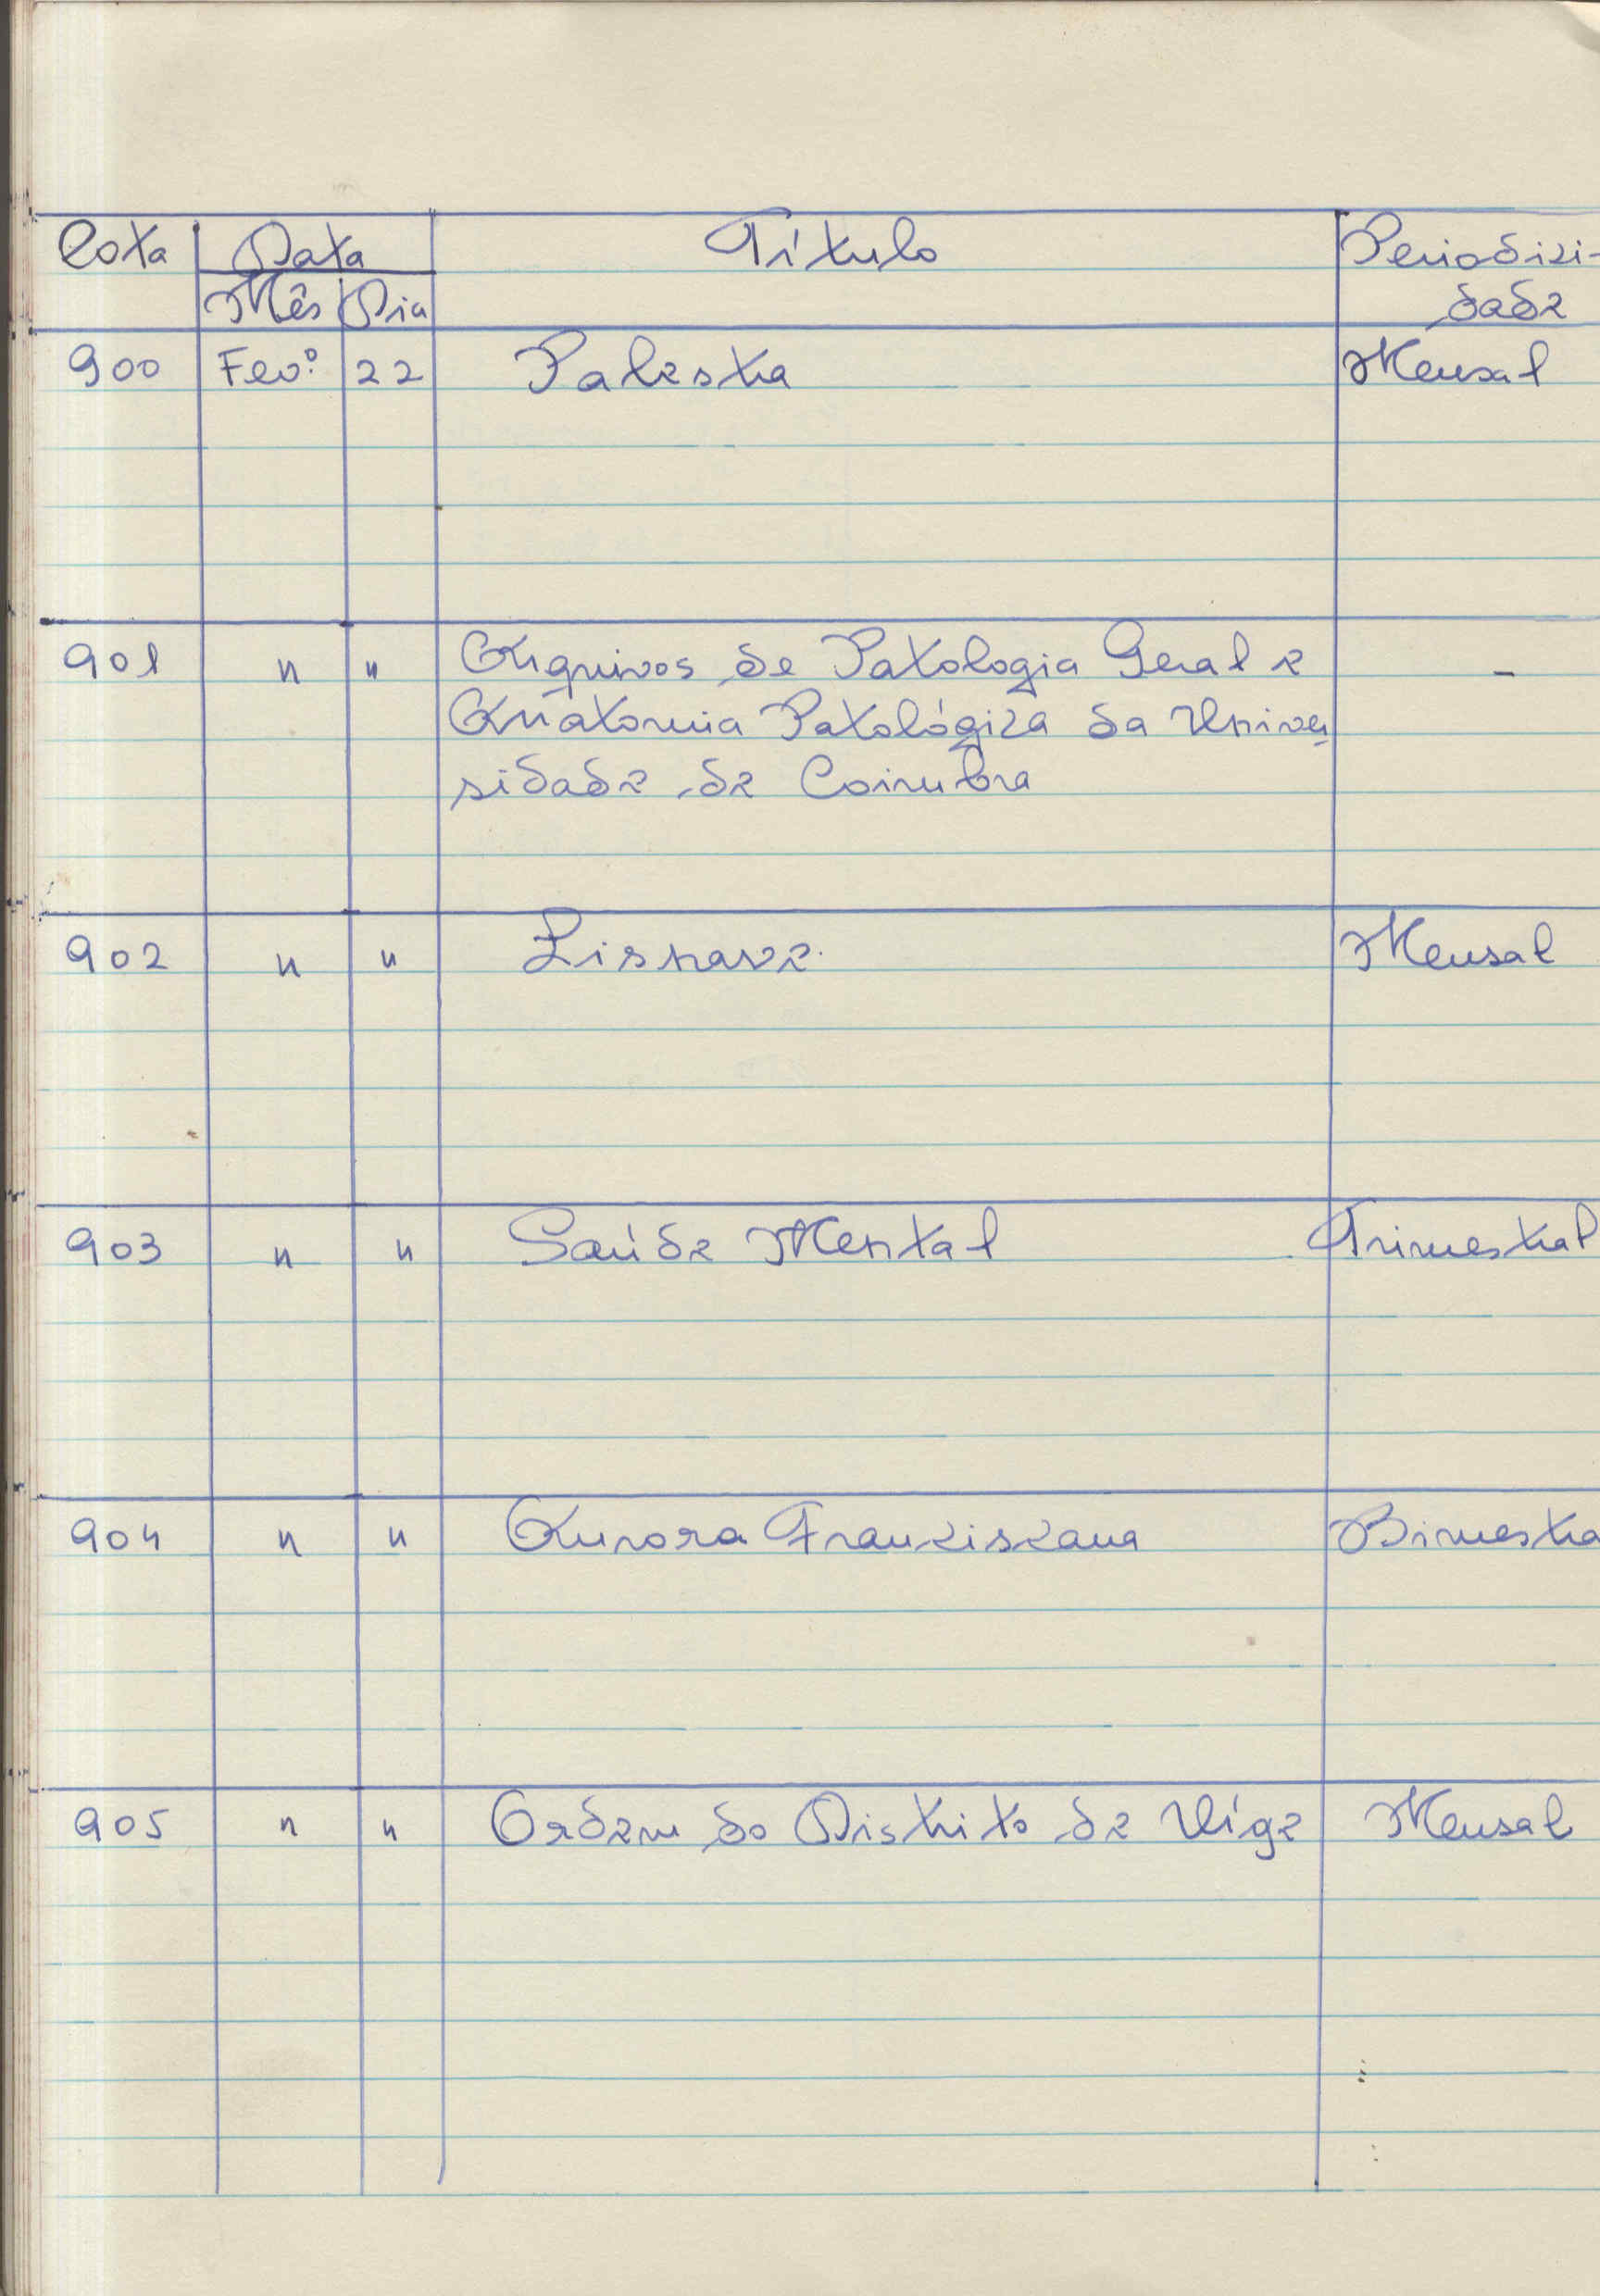 Cota Data Título Periodici-
Mês Dia dade
900 Fev.º 22 Palestra Mensal
901 " " Arquivos de Patologia Geral e -
Anatomia Patológica da Univer
sidade de Coimbra
902 " " Lisnave. Mensal
903 " " Saúde Mental Trimestral
904 " " Aurora Franciscana Bimestra
905 " " Ordem do Distrito de Uíge Mensal